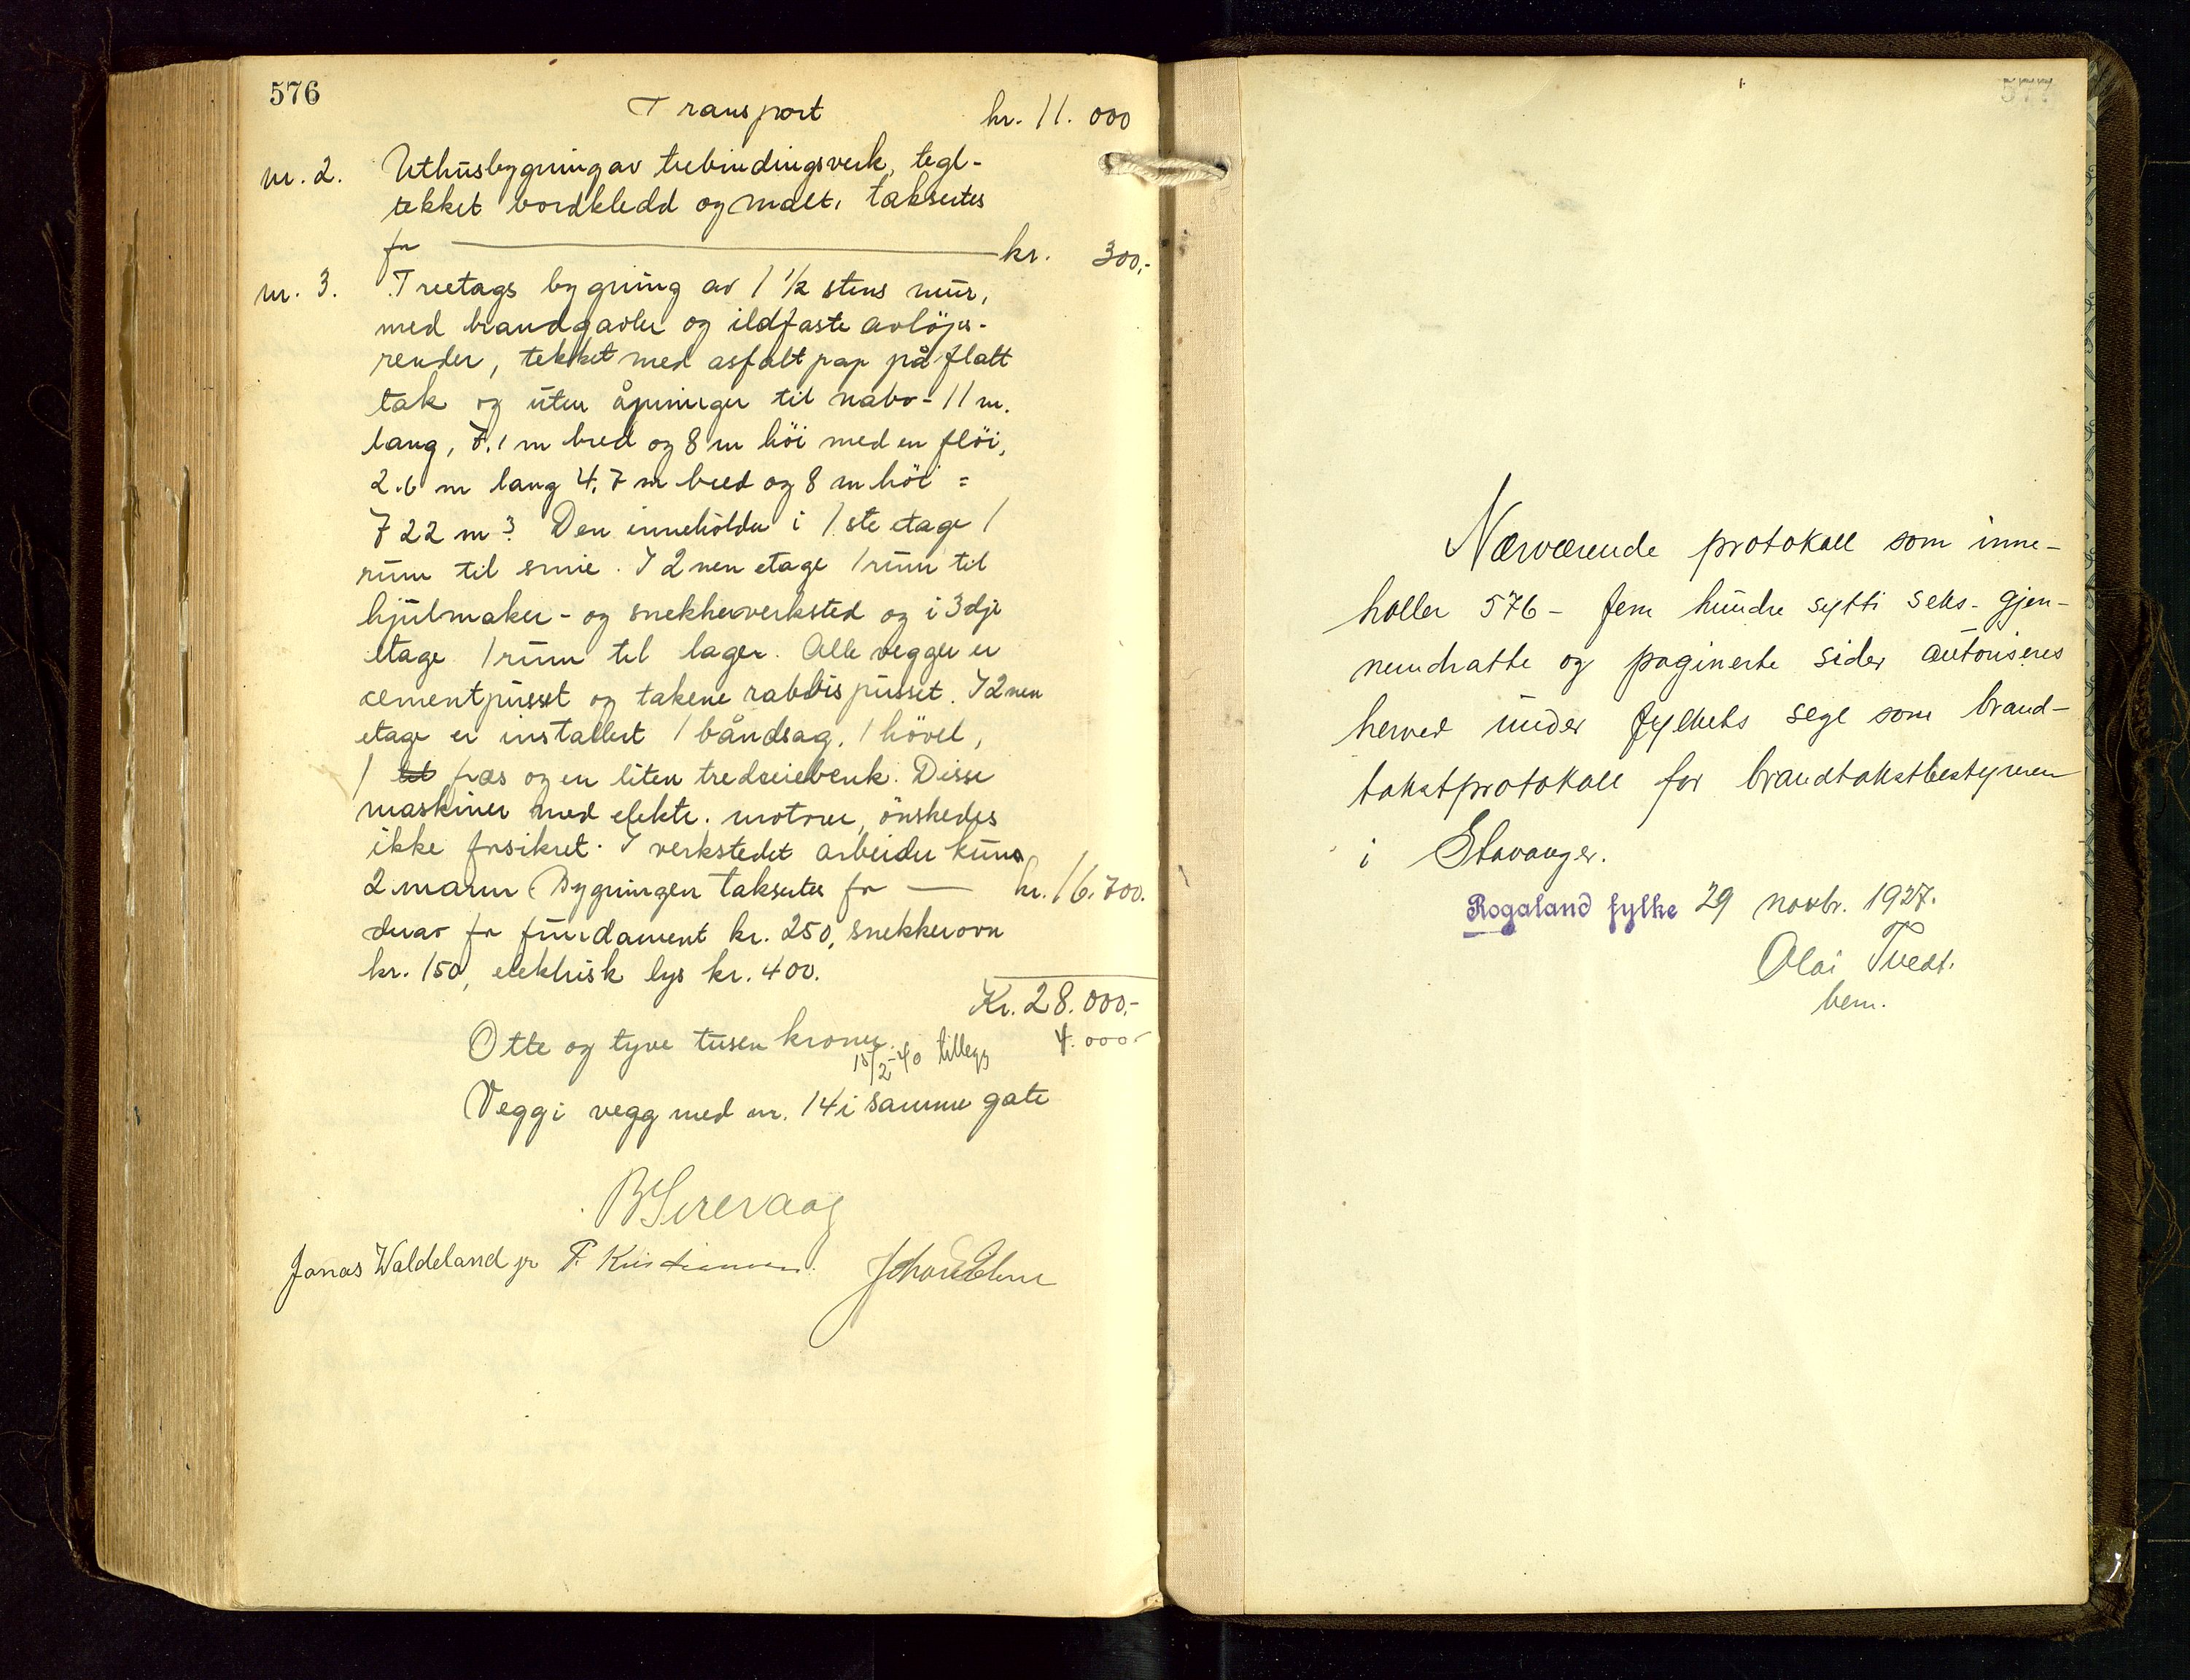 576
Transport kr. 11.000
nr. 2. Uthusbygning av trebindingsverk, tegl-
tekket bordkledd og malt, takseres
for kr. 300,-
nr. 3. Treetags bygning av 1 1/2 stens mur,
med brandgavler og ildfaste avløps-
render, tekket med asfalt pap på flatt
tak og uten åpninger til nabo - 11 m.
lang, 7.1 m bred og 8 m höi med en flöi,
2.6 m lang 4.7 m bred og 8 m höi =
722 m3. Den inneholder i 1ste etage 1
rum til smie. I 2nen etage 1 rum til
hjulmaker- og snekkerverksted og i 3dje
etage 1 rum til lager. Alle vegger er
cementpusset og takene rabbis pusset. I 2nen
etage er installert 1 båndsag, 1 hövel,
1 fræs og en liten tredreiebenk. Disse
maskiner med elektr. motorer, önskedes
ikke forsikret. I verkstedet arbeider kun
2 mann. Bygningen takseres for kr. 16.700.
derav for fundament kr. 250, snekkerovn
kr. 150, elektrisk lys kr. 400.
Kr. 28.000.-
Otte og tyve tusen kroner. 4.000-
15/2-40 tillegg
Vegg i vegg med nr. 14 i samme gate
B Sirevaag
Jonas Waldeland jr F. Kristiansen
577
Nærværende protokoll som inne-
holler 576 - fem hundre sytti seks - gjen-
nemdratte og paginerte sider autoriseres
herved under fylkets segl som brand-
takstprotokoll for brandtakstbestyreren
i Stavanger.
Rogaland fylke 29 novbr. 1927.
Olai Tvedt.
bem.